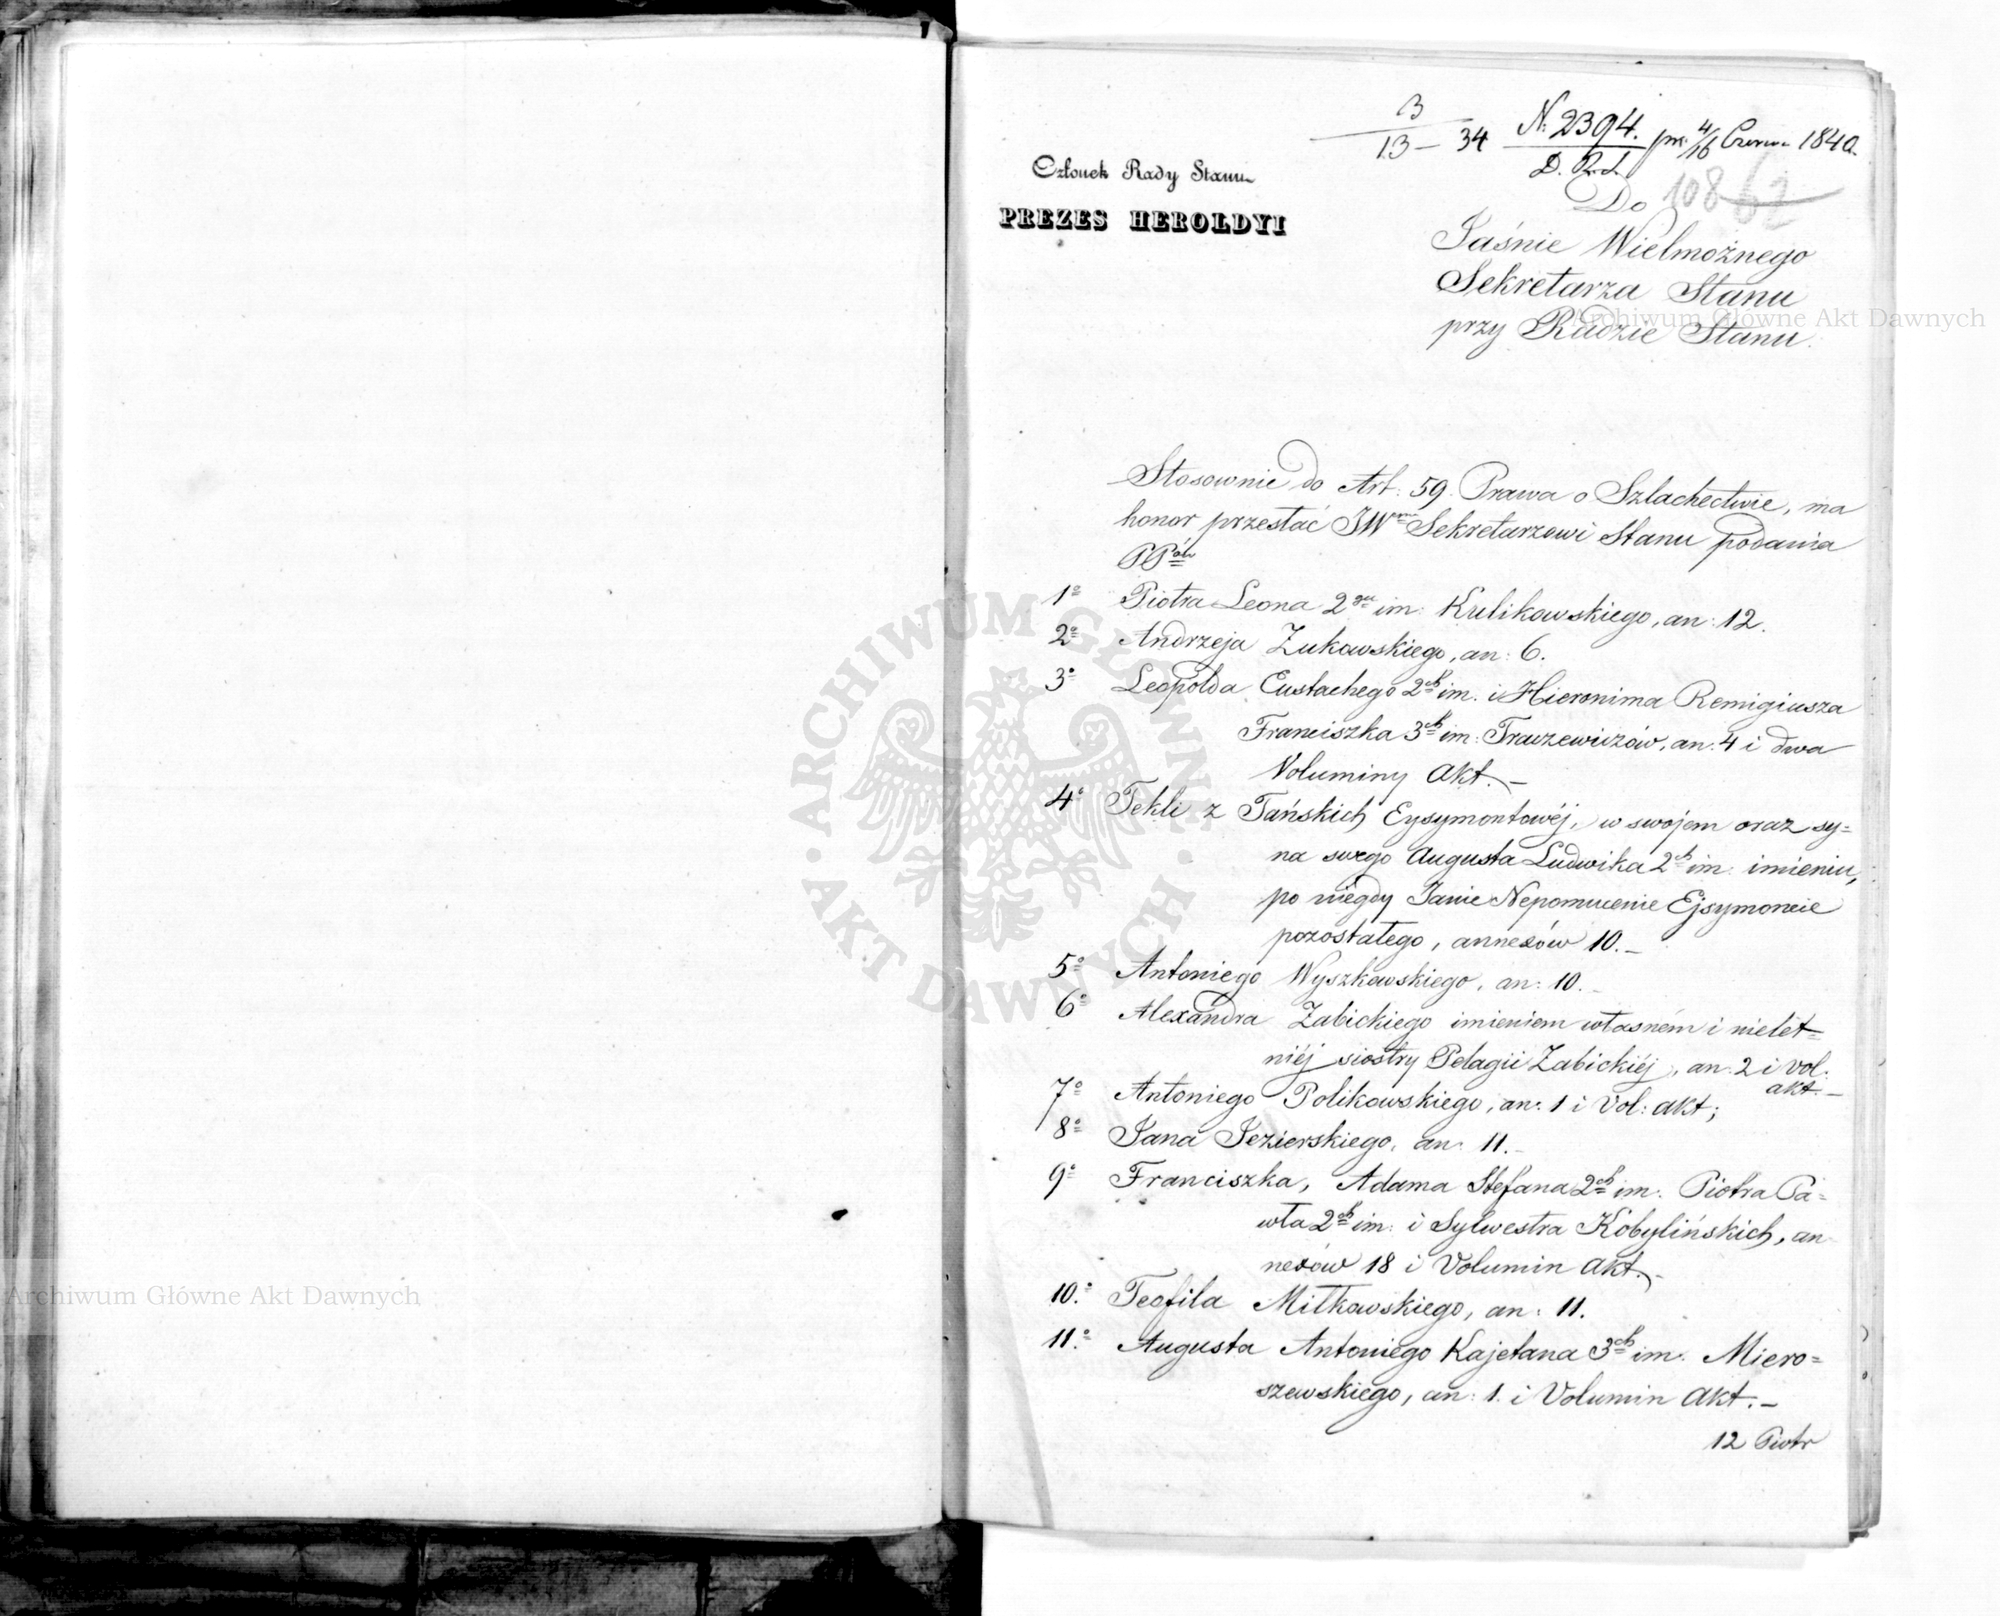 3
13 — 34 N: 2394. pr: 4/16 Czerw. 1840.
D. R. S.
Członek Rady Stanu
PREZES HEROLDYI
Do 10862
Jaśnie Wielmożnego
Sekretarza Stanu
przy Radzie Stanu.
Stosownie do Art: 59. Prawa o Szlachectwie, ma
honor przesłać JWmu Sekretarzowi Stanu podania
PPów
1o Piotra Leona 2ga im: Kulikowskiego, an: 12.
2o Andrzeja Zukowskiego, an: 6.
3o Leopolda Eustachego 2ch im. i Hieronima Remigiusza
Franciszka 3ch im: Trawzewiczów, an. 4 i dwa
Voluminy Akt. —
4o Tekli z Tańskich Eysymontowéj, w swojem oraz sy=
na swego Augusta Ludwika 2ch im. imieniu,
po niegdy Janie Nepomucenie Ejsymoncie
pozostałego, annexów 10. —
5o Antoniego Wyszkowskiego, an: 10. —
6o Alexandra Zabickiego imieniem własném i nielet=
niéj siostry Pelagii Zabickiéj, an: 2 i vol:
akt. —
7o Antoniego Polikowskiego, an: 1 i Vol: akt;
8o Jana Jezierskiego, an: 11. —
9o Franciszka, Adama Stefana 2ch im. Piotra Pa=
wła 2ch im: i Sylwestra Kobylińskich, an
nexów 18 i Volumin Akt. —
10.o Teofila Miłkowskiego, an: 11.
11.o Augusta Antoniego Kajetana 3ch im. Miero=
szewskiego, an: 1. i Volumin Akt. —
12 Piotr
ARCHIWUM GŁÓWNE · AKT DAWNYCH ·
Archiwum Główne Akt Dawnych
Archiwum Główne Akt Dawnych